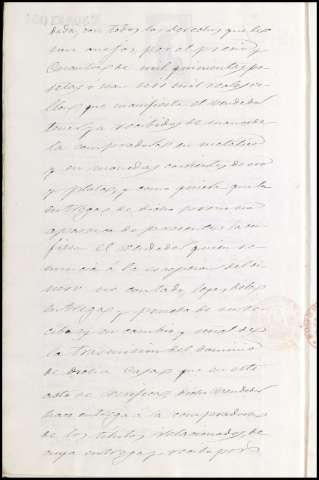 dada, con todos los derechos que les
son anejos, por el precio y
cuantia de mil quinientas pe-
setas o sean seis mil reales ve-
llon que manifiesta el vendedor
tener ya recibidas de manos de
la compradora en metalico
y en monedas corrientes de oro
y plata, y como quiera que la
entrega de dicho precio no
aparece de presente la con-
fiesa el vendedor quien re-
nuncia á la escepcion del di-
nero no contado, leyes de la
entrega y prueba de su re-
cibo; y en cambio y señal de
la transmision del dominio
de dicha casa que en este
acto se verifica, dicho vendedor
hace entrega á la compradora
de los titulos relacionados, de
cuya entrega y recibo por